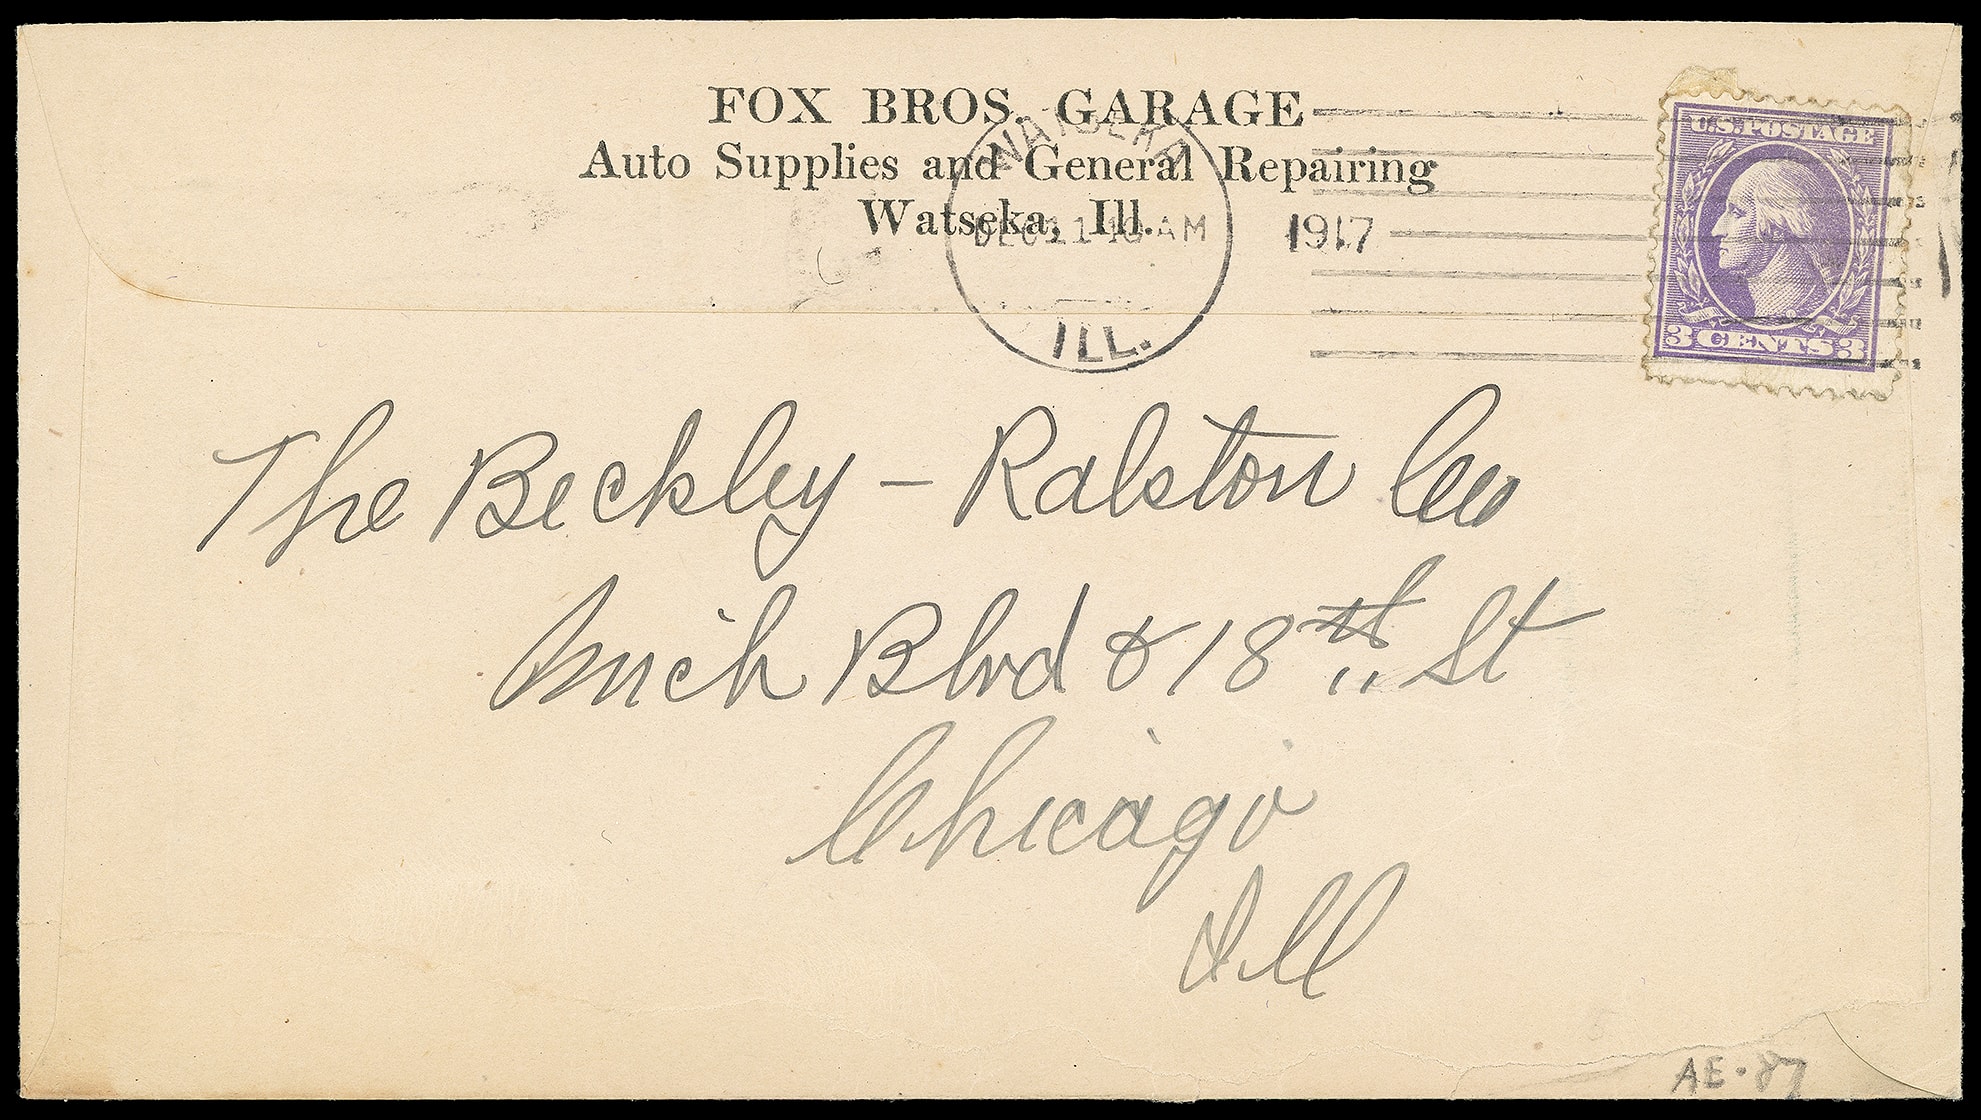 FOX BROS. GARAGE
Auto Supplies and General Repairing
Watseka, Ill.
WATSEKA
DEC 11 10 AM
1917
ILL.
U.S. POSTAGE
3 CENTS 3
The Beckley - Ralston Co
Mich Blvd & 18th St
Chicago
Ill
AE. 87